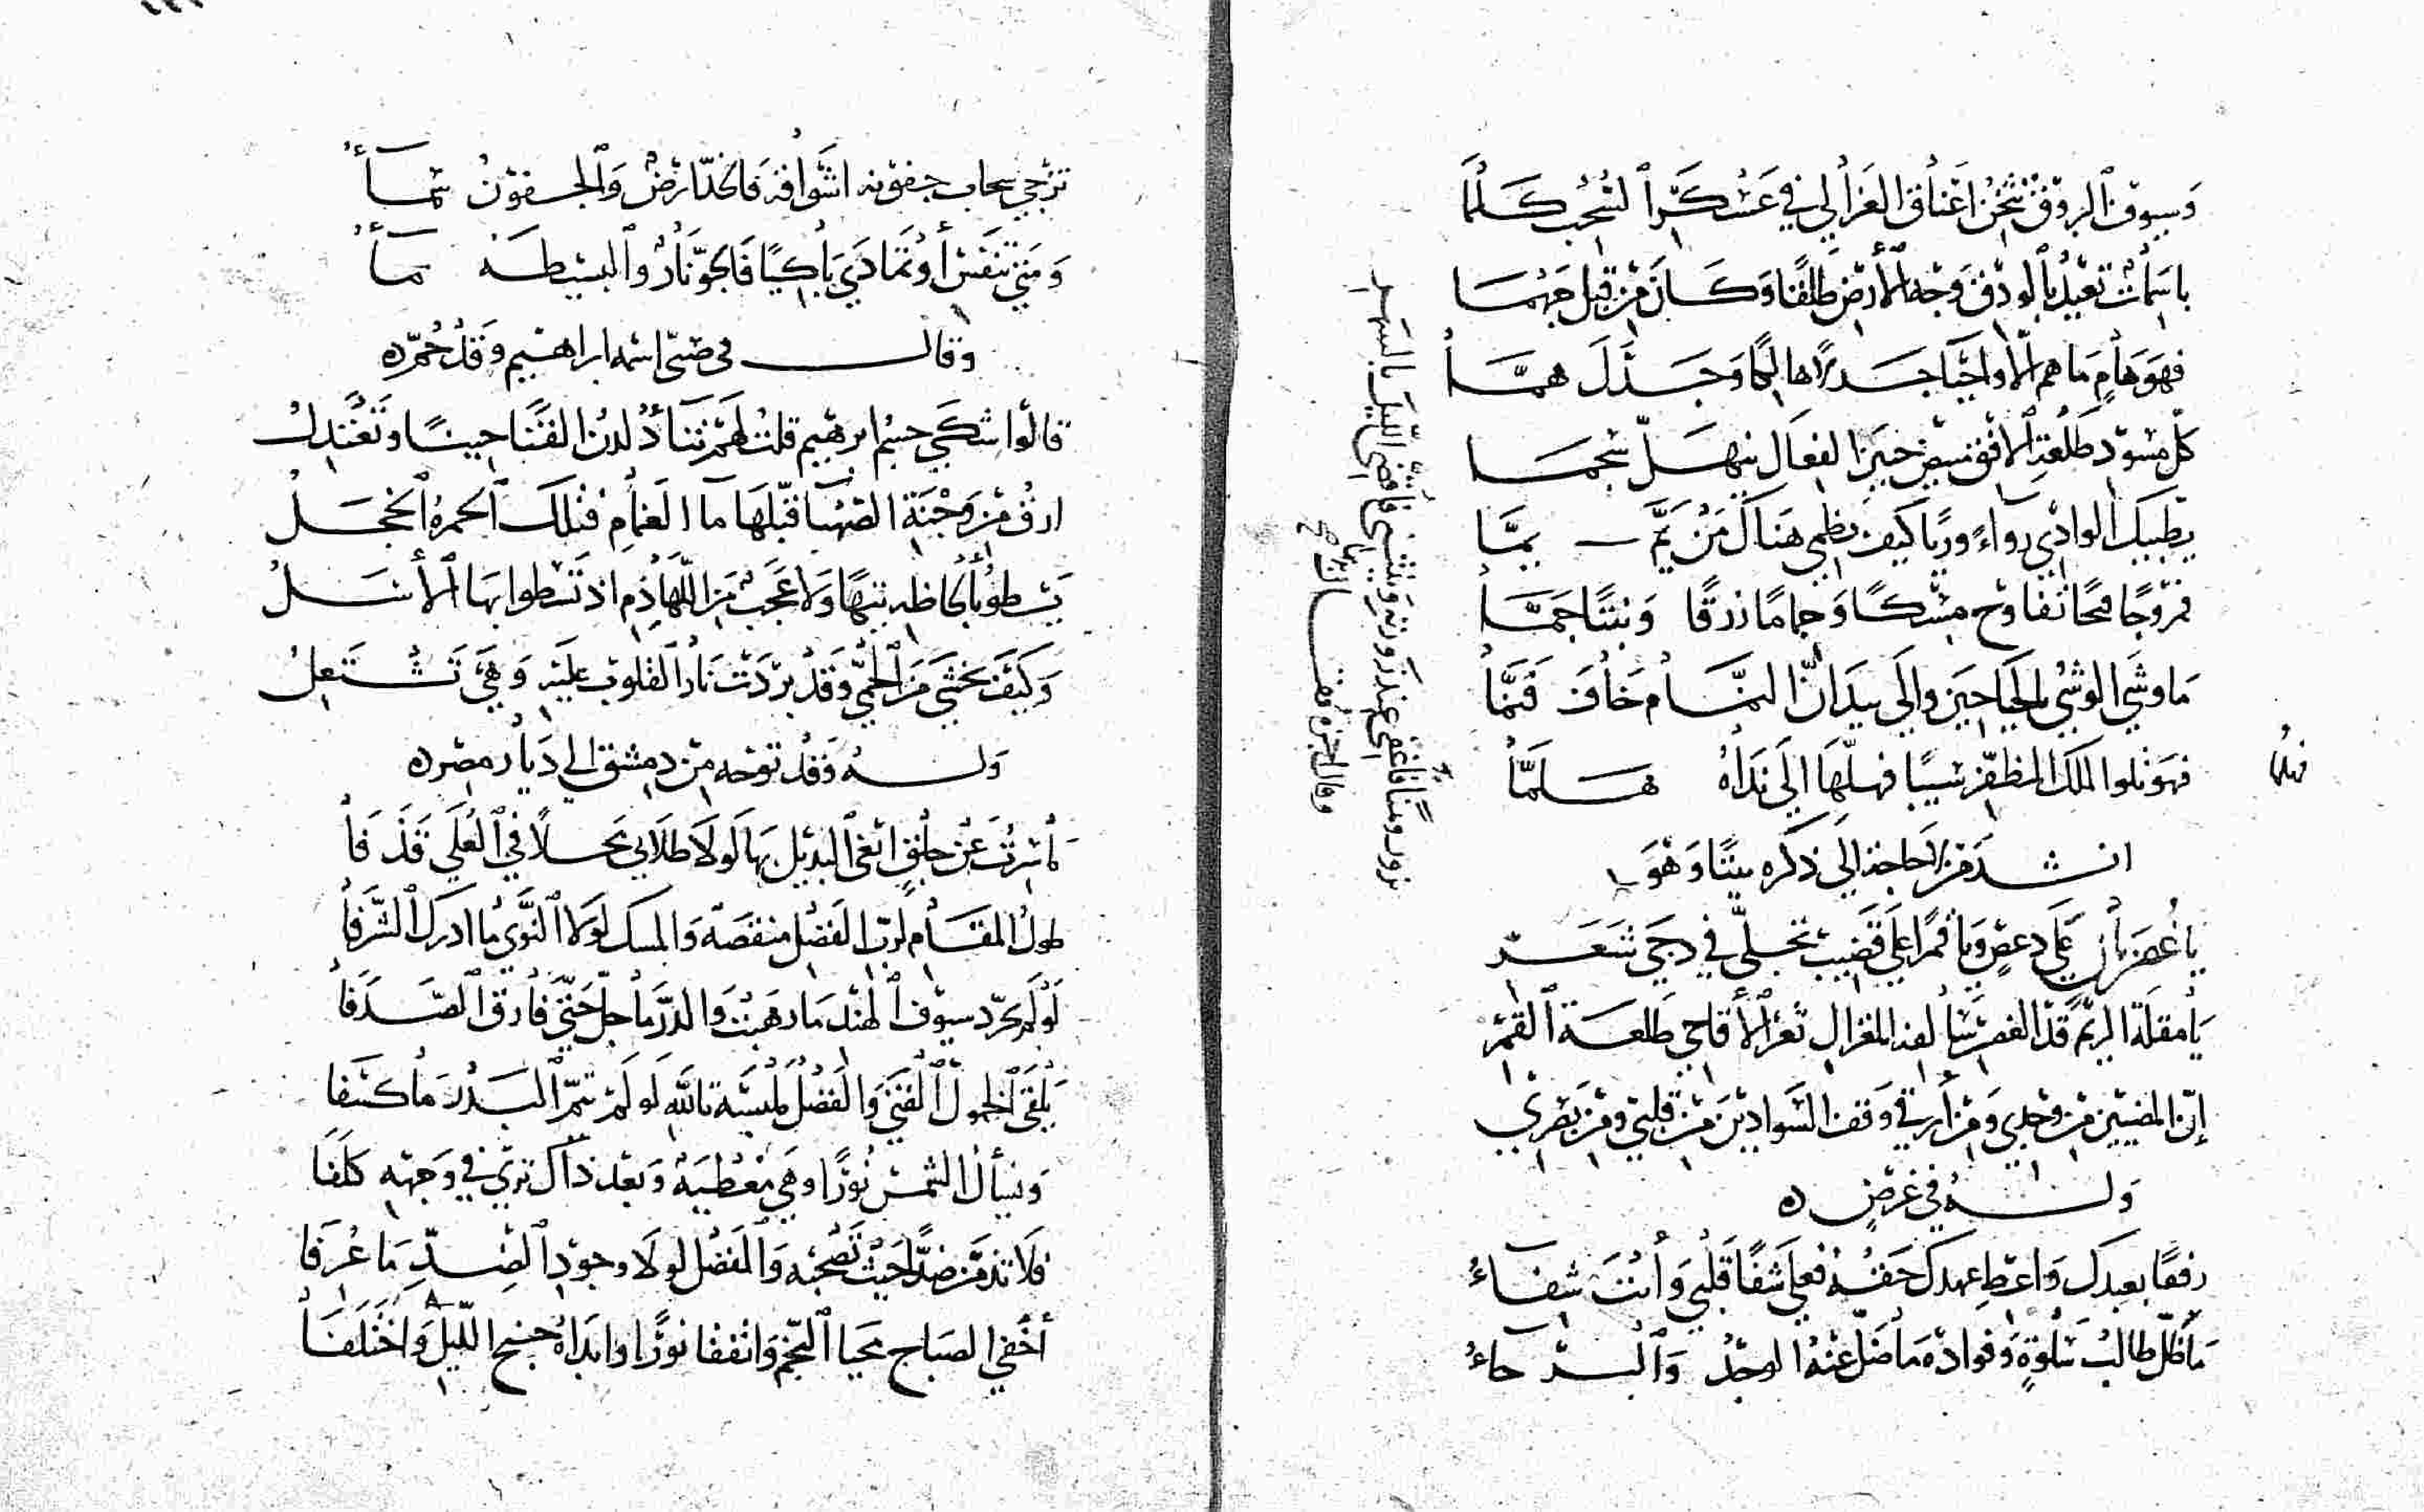 وَسيوف البروق تثخن اعناق العزالي في عسكر السحب كلما
باسمات تعيد بالودق وجه الأرض طلقا وكان من قبل جهما
فهو هام ما هم الا واحيا جسدا هالكا وجدل همّا
كل مسود طلعة الافق تبيض حين الفعال ينهل سحما
يطبيك الوادي رواء وريا كيف يظمى هناك من يمّ يمّا
فمروجا فحا تفاوح مسكا وجماما زرقا ونبتا جمّا
ما وشى الوشي بالحيا حين والى بيد ان النمام خاف فنمّا
فهو يتلوا الملك المظفر سيبا فهلها الى نداه هلما
انشد من الحاجة الى ذكره بيتا وهو
يا غصن بان على دعص ويا قمرا على قضيب تجلى في دجى شعر
يا مقلة الريم قد الغصن سالفة الغزال ثغر الأقاحي طلعة القمر
إنّ المضيين من وجدي ومن أرقي وقف السوادين من قلبي ومن بصري
وله في غرض
رفقا بعبدك واعط عهدك حقه فعلى شفا قلبي وأنت شفاء
ما ظل طالب سلوة وفؤاده ما ضل عنه الوجد والبرحاء
فافضى الليل بالسهر
وقال اخر فقال
تزجي سحاب جفونه اشواقه فالخد ارض والجفون سماء
ومتى تنفس أو تمادى باكيا فالجو نار والبسيطة ماء
وقال في صبي اسمه ابراهيم وقد حم
قالوا شكى جسم ابرهيم قلت لهم تناد لدن القنا حينا وتعتدل
ارق من وجنة الصهبا قبلها ما الغمام فتلك الحمرة الخجل
يسطو بألحاظه تيها ولا عجب من اللهاذم اذ تسطوا بها الأسل
وكيف يخشى من الحمى وقد بردت نار القلوب عليه وهي تشتعل
وله وقد توجه من دمشق الى ديار مصر
ما سرت عن جلق ابغي البديل بها لولا طلابي محلا في العلى قذفا
طول المقام لرب الفضل منقصة والمسك لولا النوى ما ادرك الشرفا
لو لم تجرد سيوف الهند ما رهبت والدر ما جل حتى فارق الصدفا
يلقى الخمول الفتى والفضل ملبسه تالله لو لم يتم البدر ما كسفا
ويسأل الشمس نورا وهي معطية وبعد ذاك ترى في وجهه كلفا
فلا تذمن ضدا حيث تصحبه والفضل لولا وجود الضد ما عرفا
أخفى الصباح محيا النجم واتفقا نورا وابداه جنح الليل واختلفا